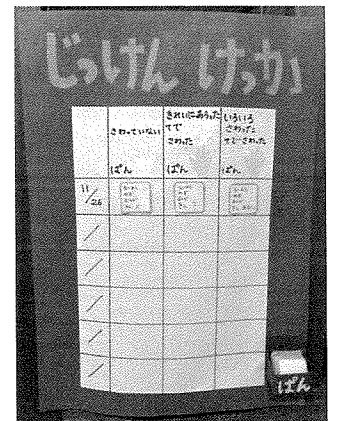 じっけん けっか
さわっていない
ぱん
きれいにあらった
てで
さわった
ぱん
いろいろ
さわった
てでさわった
ぱん
11/26
ぱん